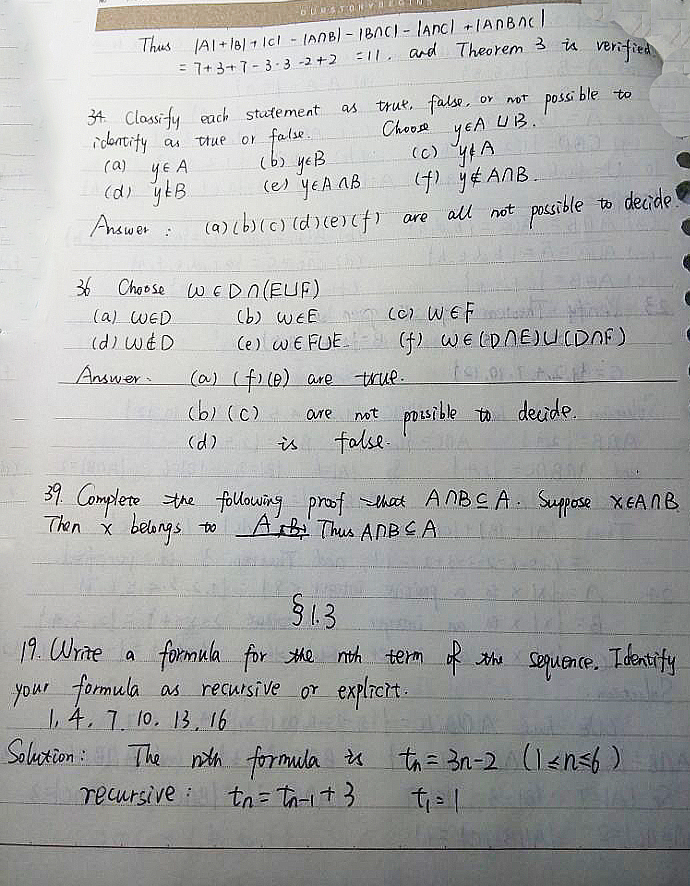 OURSTORYBEGINS
Thus |A|+|B|+|C| - |A∩B| - |B∩C| - |A∩C| + |A∩B∩C|
= 7+3+7-3-3-2+2 = 11. and Theorem 3 is verified.
34. Classify each statement as true, false, or not possible to
identify as true or false. Choose y∈A ∪ B.
(a) y∈A (b) y∈B (c) y∉A
(d) y∉B (e) y∈A∩B (f) y∉A∩B.
Answer : (a)(b)(c)(d)(e)(f) are all not possible to decide.
36 Choose W∈D∩(E∪F)
(a) W∈D (b) W∈E (c) W∈F
(d) W∉D (e) W∈F∪E (f) W∈(D∩E)∪(D∩F)
Answer. (a) (f)(e) are true.
(b) (c) are not possible to decide.
(d) is false.
39. Complete the following proof that A∩B⊆A. Suppose x∈A∩B.
Then x belongs to A, B, Thus A∩B⊆A
§1.3
19. Write a formula for the nth term of the sequence. Identify
your formula as recursive or explicit.
1, 4, 7, 10, 13, 16
Solution: The nth formula is tn = 3n-2 (1≤n≤6)
recursive: tn = tn-1 + 3 t1 = 1